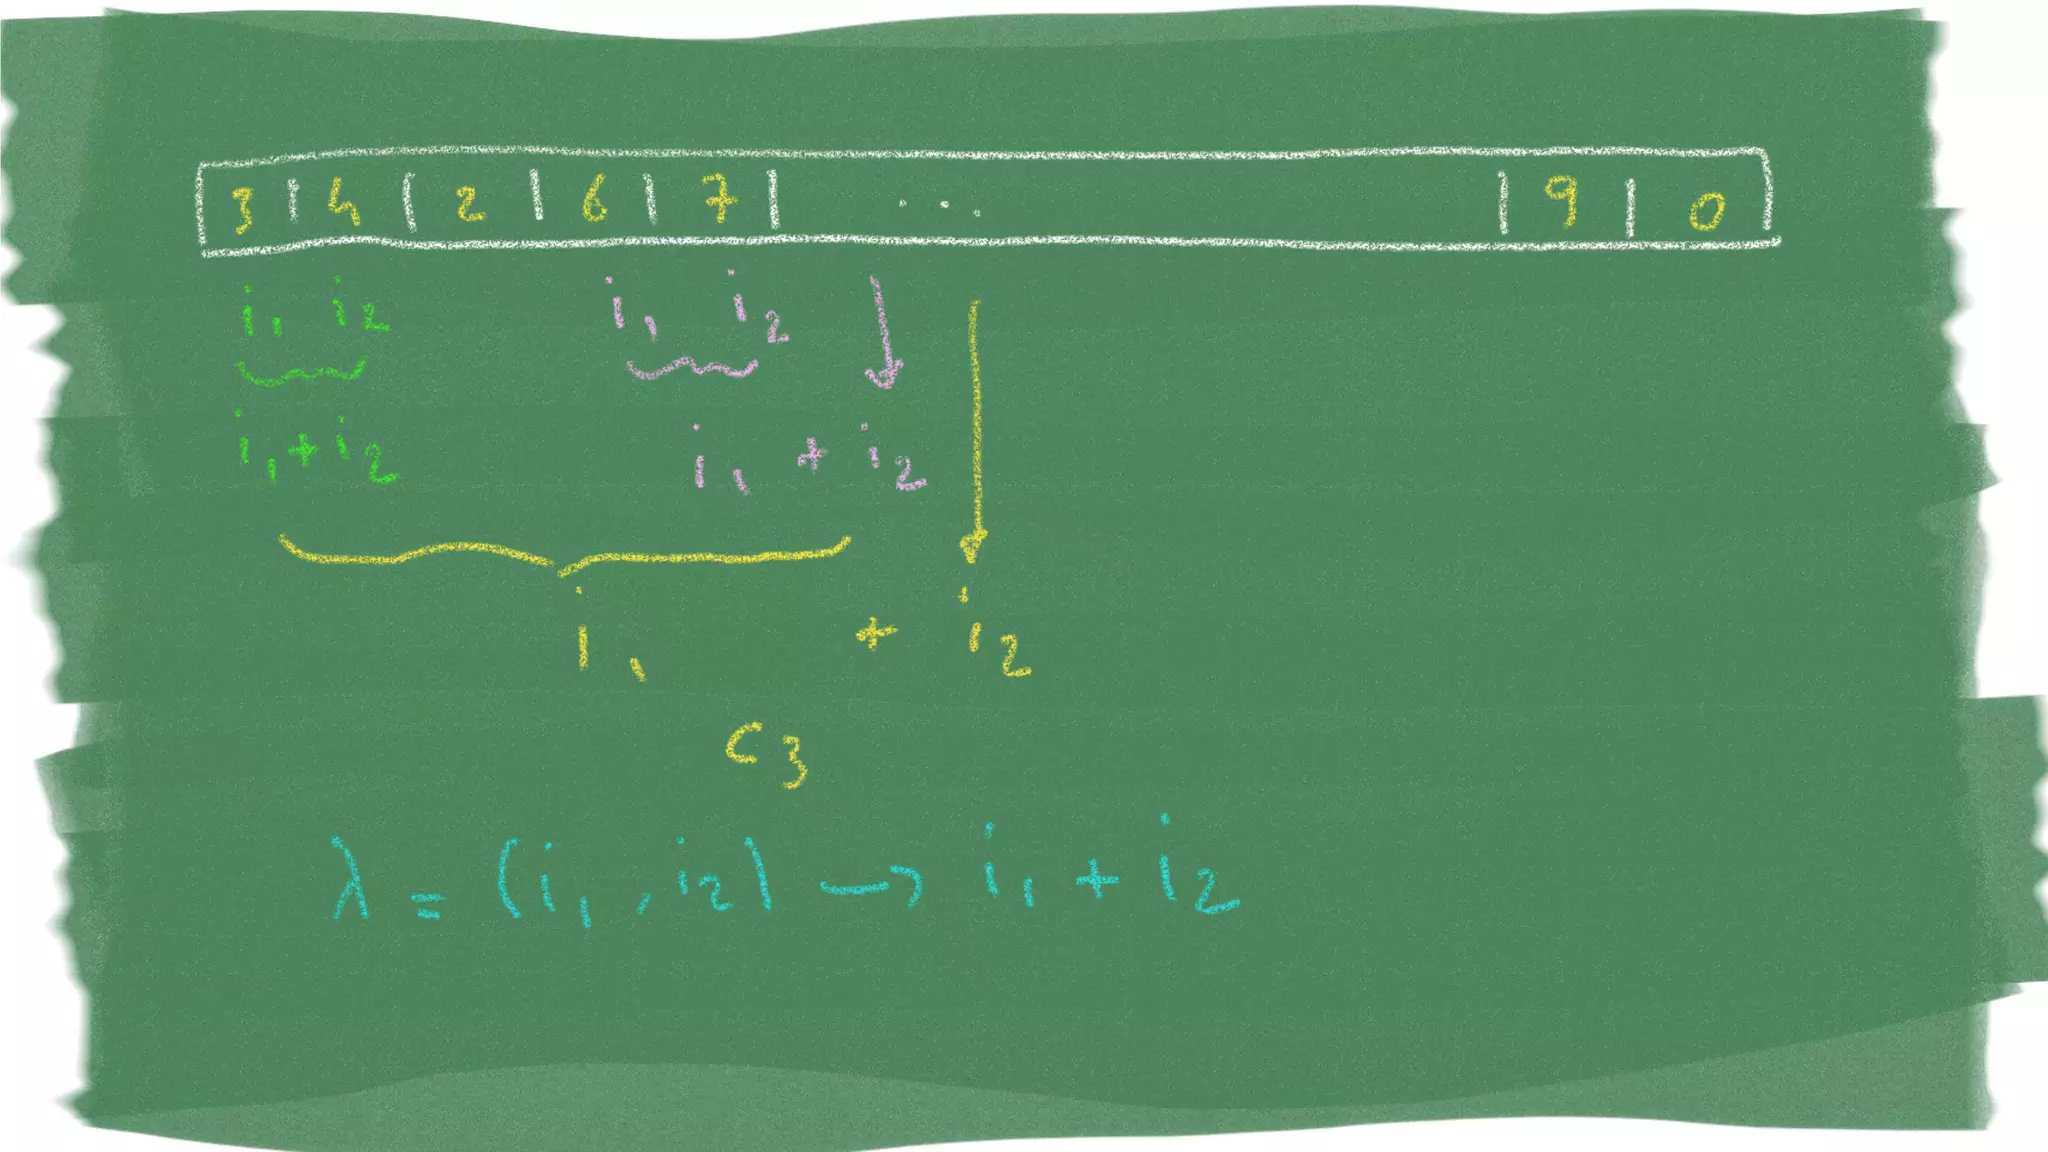 3 | 4 | 2 | 6 | 7 | ... | 9 | 0
i₁ i₂ i₁ i₂
i₁+i₂ i₁ + i₂
i₁ + i₂
c₃
λ = (i₁, i₂) → i₁ + i₂